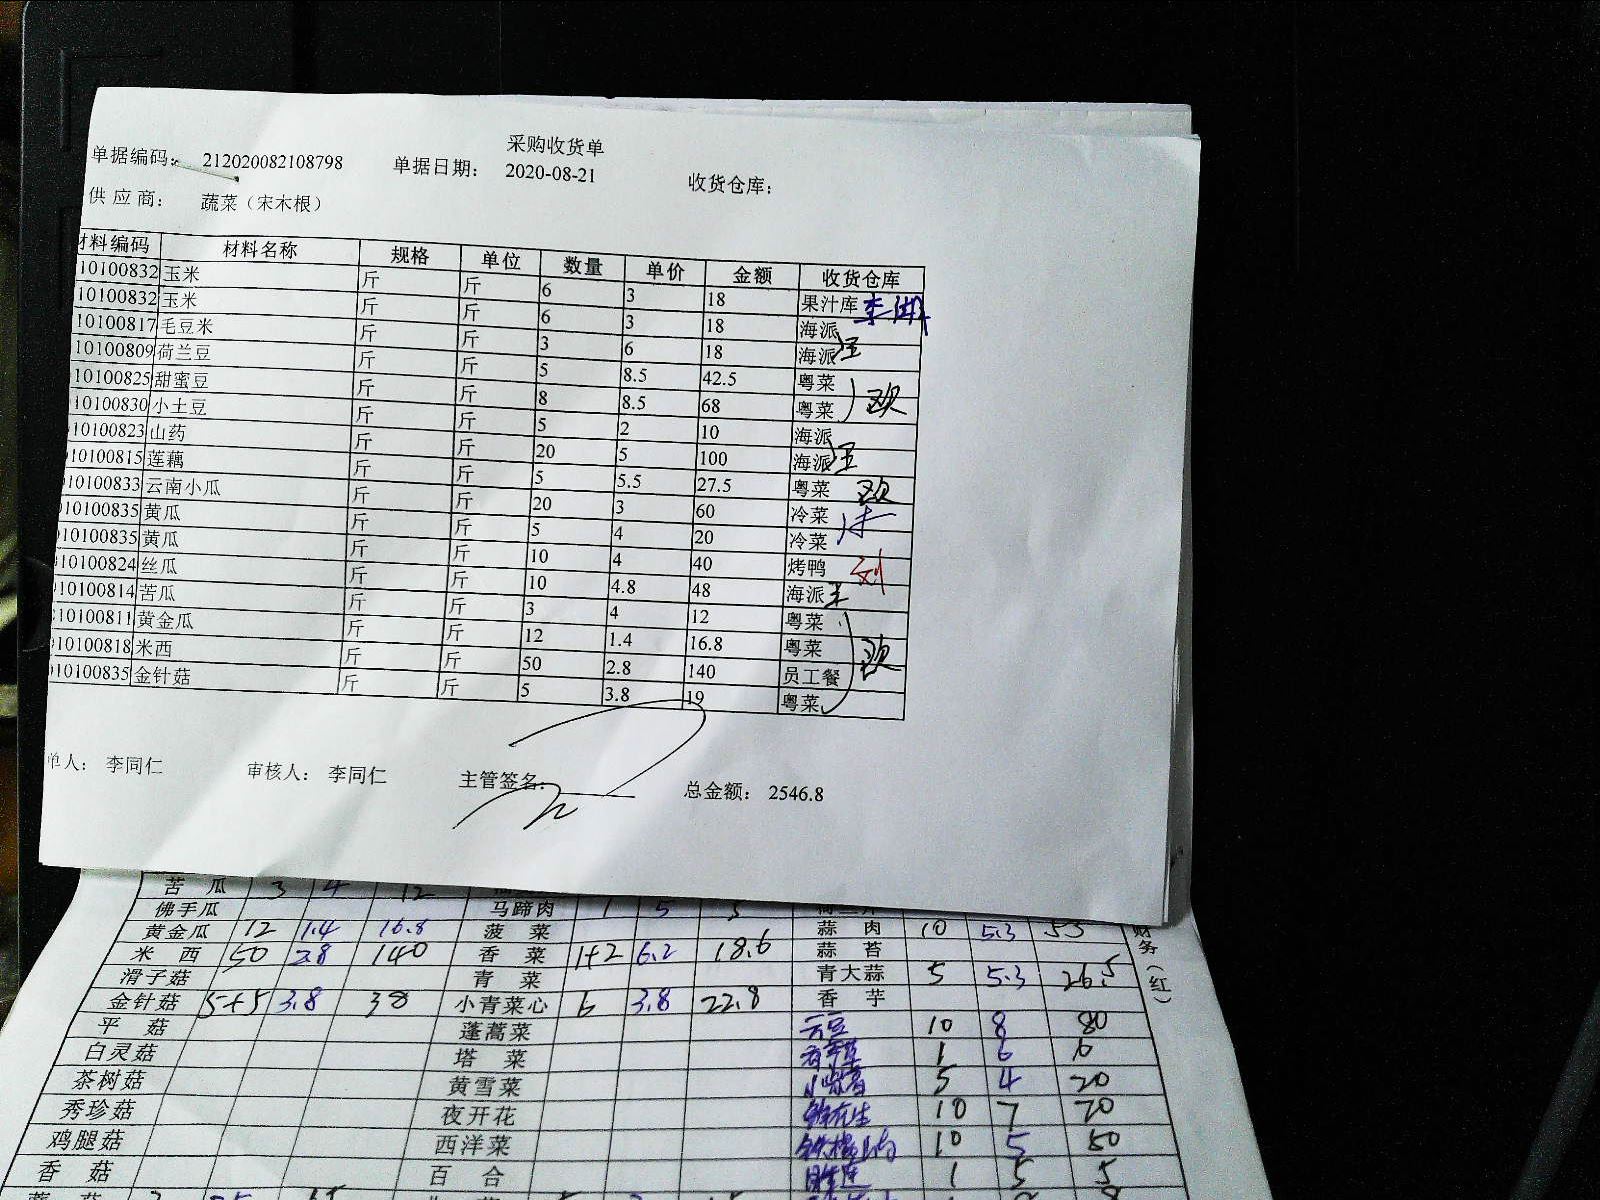 采购收货单
单据编码: 212020082108798 单据日期: 2020-08-21 收货仓库:
供应商: 蔬菜（宋木根）
材料编码 材料名称 规格 单位 数量 单价 金额 收货仓库
10100832 玉米 斤 斤 6 3 18 果汁库
10100832 玉米 斤 斤 6 3 18 海派
10100817 毛豆米 斤 斤 3 6 18 海派 汪
10100809 荷兰豆 斤 斤 5 8.5 42.5 粤菜
10100825 甜蜜豆 斤 斤 8 8.5 68 粤菜 欧
10100830 小土豆 斤 斤 5 2 10 海派
10100823 山药 斤 斤 20 5 100 海派 汪
10100815 莲藕 斤 斤 5 5.5 27.5 粤菜 欧
10100833 云南小瓜 斤 斤 20 3 60 冷菜
10100835 黄瓜 斤 斤 5 4 20 冷菜
10100835 黄瓜 斤 斤 10 4 40 烤鸭 刘
10100824 丝瓜 斤 斤 10 4.8 48 海派
10100814 苦瓜 斤 斤 3 4 12 粤菜
10100811 黄金瓜 斤 斤 12 1.4 16.8 粤菜 欧
10100818 米西 斤 斤 50 2.8 140 员工餐
10100835 金针菇 斤 斤 5 3.8 19 粤菜
单人: 李同仁 审核人: 李同仁 主管签名: 总金额: 2546.8
苦瓜 3 4 12
佛手瓜 马蹄肉 1 5 5
黄金瓜 12 1.4 16.8 菠菜 蒜肉 10 5.3 53
米西 50 2.8 140 香菜 1+2 6.2 18.6 蒜苔
滑子菇 青菜 青大蒜 5 5.3 26.5
金针菇 5+5 3.8 38 小青菜心 6 3.8 22.8 香芋
平菇 蓬蒿菜 云豆 10 8 80
白灵菇 塔菜 1 6 6
茶树菇 黄雪菜 5 4 20
秀珍菇 夜开花 10 7 70
鸡腿菇 西洋菜 10 5 50
香菇 百合 1 5 5
财务（红）